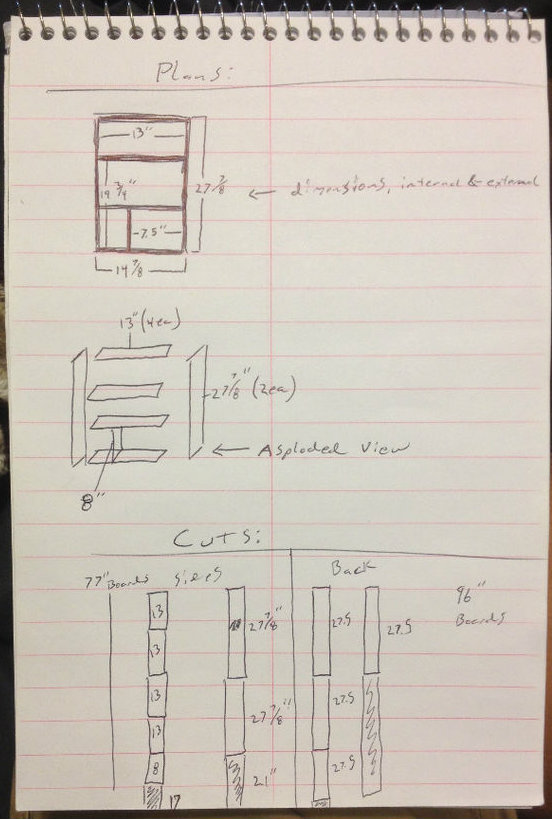 Plans:
13"
19 3/4"
27 7/8
7.5"
14 7/8
← dimensions, internal & external
13" (4ea)
27 7/8" (2ea)
← Asploded View
8"
Cuts:
77" Boards
Sides
Back
96"
Boards
13
27 7/8"
27.5
27.5
13
13
27 7/8"
27.5
13
8
21"
27.5
17